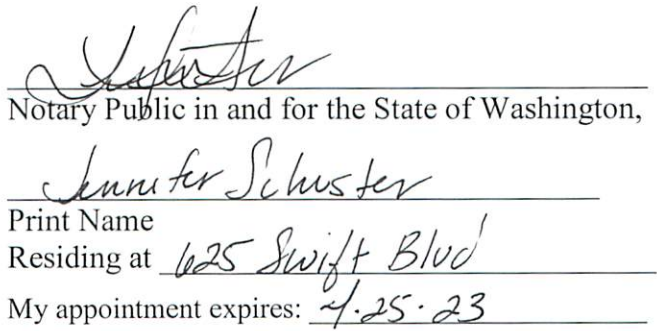 Notary Public in and for the State of Washington,
Jennifer Schuster
Print Name
Residing at 625 Swift Blvd
My appointment expires: 4.25.23